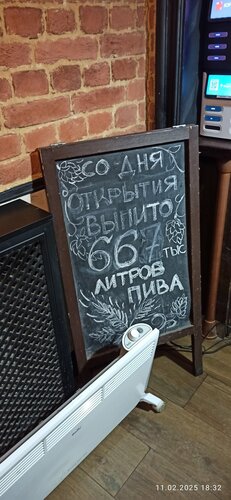 СО ДНЯ
ОТКРЫТИЯ
ВЫПИТО
667 тыс
ЛИТРОВ
ПИВА
11.02.2025 18:32